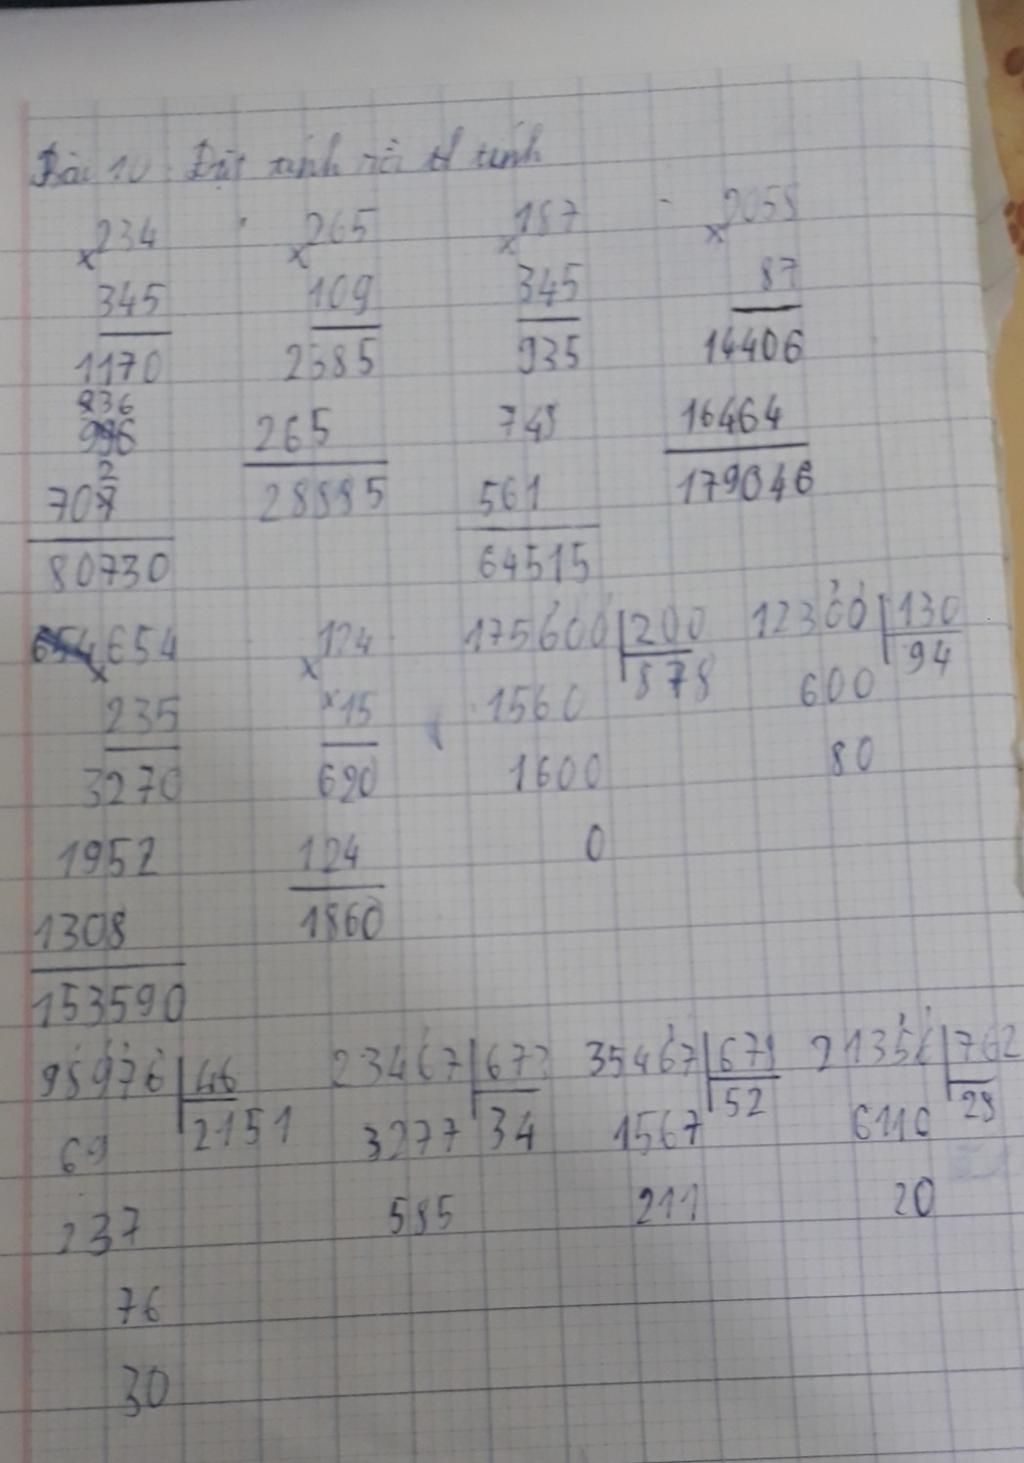 Bài 10: Đặt tính rồi tính
234 265 187 2058
x x x x
345 109 345 87
1170 2385 935 14406
836
265 748 16464
702 28885 561 179046
80730 64515
654 124 175600 200 12300 130
x x 878 94
235 x15 1560 600
3270 620 1600 80
1952 124 0
1308 1860
153590
98976 46 23467 677 35467 678 21356 762
2151 34 52 28
69 3277 1567 6110
237 585 211 20
76
30